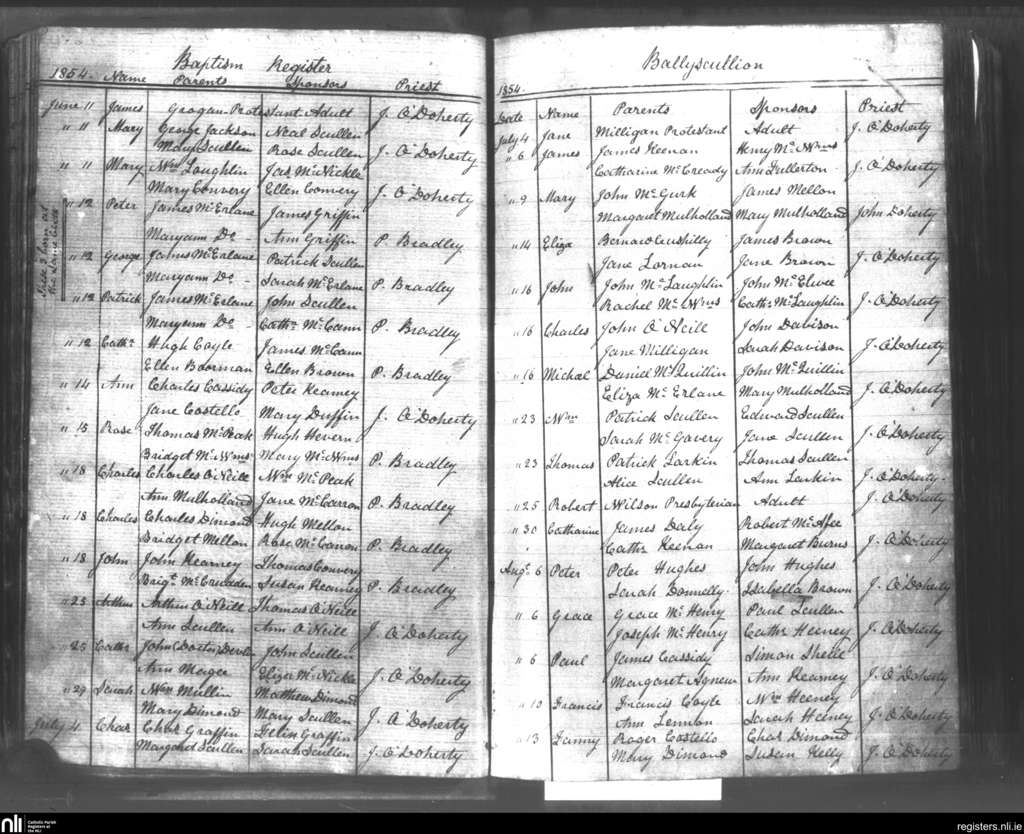 Baptism Register
1854. Name Parents Sponsors Priest
June 11 James Grogan Protestant Adult J. O'Doherty
" 11 Mary George Jackson Neal Scullen
Mary Scullen Rose Scullen J. O'Doherty
" 11 Mary Wm Loughlin Jas McNickle
Mary Convery Ellen Convery J. O'Doherty
" 12 Peter James McErlane James Griffin
Maryann Do - Ann Griffin P. Bradley
" 12 George James McErlane Patrick Scullen
Maryann Do - Sarah McErlane P. Bradley
" 12 Patrick James McErlane John Scullen
Maryann Do - Cathe McCann P. Bradley
these 3 born at the same birth
" 12 Cathe Hugh Coyle James McCann
Ellen Boorman Ellen Brown P. Bradley
" 14 Ann Charles Cassidy Peter Kearney
Jane Costello Mary Duffin J. O'Doherty
" 15 Rose Thomas McPeak Hugh Hevern
Bridget McWms Mary McWms P. Bradley
" 18 Charles Charles O'Neill Wm McPeak
Ann Mulholland Jane McCarron P. Bradley
" 18 Charles Charles Dimond Hugh Mellon
Bridget Mellon Rose McCanon P. Bradley
" 18 John John Kearney Thomas Convery
Brigt McCrudden Susan Kearney P. Bradley
" 25 Arthur Arthur O'Neill Thomas O'Neill
Ann Scullen Ann O'Neill J. O'Doherty
" 25 Cathe John (Doctr) Devlin John Scullen
Ann Magee Eliza McNickle J. O'Doherty
" 29 Sarah Wm Mullin Matthew Dimond
Mary Dimond Mary Scullen J. O'Doherty
July 4 Chas Chas Graffin Helen Graffin
Margaret Scullen Sarah Scullen J. O'Doherty
Ballyscullion
1854.
Date Name Parents Sponsors Priest
July 4 Jane Milligan Protestant Adult J. O'Doherty
" 6 James James Keenan Henry McWms
Catharine McCready Ann Fullerton J. O'Doherty
" 9 Mary John McGurk James Mellon
Margaret Mulholland Mary Mulholland John Doherty
" 14 Eliza Bernard James Brown
Jane Lornan Jane Brown J. O'Doherty
" 16 John John McLaughlin John McElwee
Rachel McWms Cathe McLaughlin J. O'Doherty
" 16 Charles John O'Neill John Davison
Jane Milligan Sarah Davison J. O'Doherty
" 16 Michael Daniel McQuillin John McQuillin
Eliza McErlane Mary Mulholland J. O'Doherty
" 23 Wm Patrick Scullen Edward Scullen
Sarah McGavery Jane Scullen J. O'Doherty
" 23 Thomas Patrick Larkin Thomas Scullen
Alice Scullen Ann Larkin J. O'Doherty
" 25 Robert Wilson Presbyterian Adult J. O'Doherty
" 30 Catharine James Daly Robert McAfee
Cathe Keenan Margaret Burns J. O'Doherty
Augt 6 Peter Peter Hughes John Hughes
Sarah Donnelly Isabella Brown J. O'Doherty
" 6 Grace Grace McHenry Paul Scullen
Joseph McHenry Cathe Heeney J. O'Doherty
" 6 Paul James Cassidy Simon Sheil
Margaret Agnew Ann Kearney J. O'Doherty
" 10 Francis Francis Coyle Wm Heeney
Ann Lennon Sarah Heeney J. O'Doherty
" 13 Fanny Roger Costello Chas Dimond
Mary Dimond Susan Kelly J. O'Doherty
nli Catholic Parish Registers at the NLI
registers.nli.ie